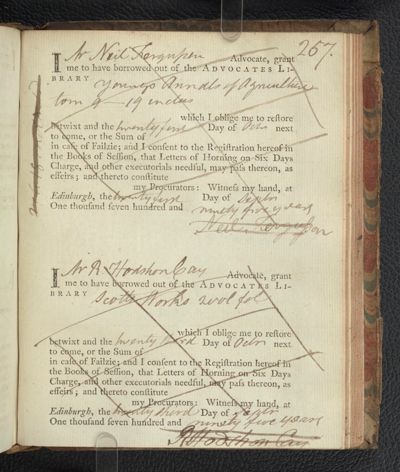 257.
I Mr Neil Fergusson Advocate, grant
me to have borrowed out of the ADVOCATES LI-
BRARY Youngs Annals of Agriculture
tom 9 - 19 inclus
which I oblige me to restore
betwixt and the twenty first Day of Octr next
to come, or the Sum of
in case of Failzie; and I consent to the Registration hereof in
the Books of Session, that Letters of Horning on Six Days
Charge, and other executorials needful, may pass thereon, as
effeirs; and thereto constitute
my Procurators: Witness my hand, at
Edinburgh, the twenty first Day of Septr
One thousand seven hundred and ninety five years
Neil Fergusson
I Mr R Hodshon Cay Advocate, grant
me to have borrowed out of the ADVOCATES LI-
BRARY Scotts Works 2 vol fol
which I oblige me to restore
betwixt and the twenty third Day of Octr next
to come, or the Sum of
in case of Failzie; and I consent to the Registration hereof in
the Books of Session, that Letters of Horning on Six Days
Charge, and other executorials needful, may pass thereon, as
effeirs; and thereto constitute
my Procurators: Witness my hand, at
Edinburgh, the twenty third Day of Septr
One thousand seven hundred and ninety five years
R Hodshon Cay